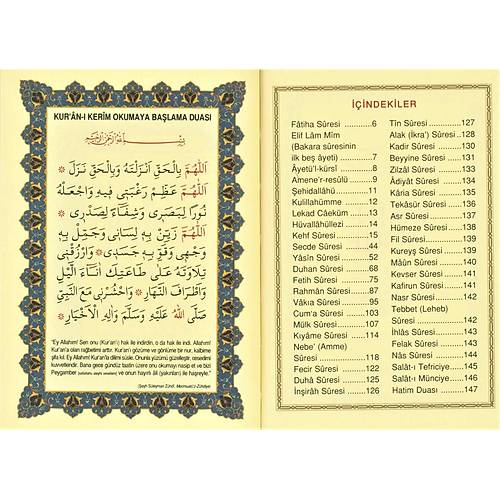 KUR'ÂN-I KERİM OKUMAYA BAŞLAMA DUASI
بِسْمِ اللّٰهِ الرَّحْمٰنِ الرَّحِيمِ
اَللّٰهُمَّ بِالْحَقِّ اَنْزَلْتَهُ وَبِالْحَقِّ نَزَلَ
اَللّٰهُمَّ عَظِّمْ رَغْبَتِى فِيهِ وَاجْعَلْهُ
نُورًا لِبَصَرِى وَشِفَاءً لِصَدْرِى
اَللّٰهُمَّ زَيِّنْ بِهِ لِسَانِى وَجَمِّلْ بِهِ
وَجْهِى وَقَوِّ بِهِ جَسَدِى وَارْزُقْنِى
تِلَاوَتَهُ عَلَى طَاعَتِكَ اٰنَاءَ الَّيْلِ
وَاَطْرَافَ النَّهَارِ وَاحْشُرْنِى مَعَ النَّبِىِّ
صَلَّى اللّٰهُ عَلَيْهِ وَسَلَّمَ وَاٰلِهِ الْاَخْيَارِ
"Ey Allahım! Sen onu (Kur'an'ı) hak ile indirdin, o da hak ile indi. Allahım!
Kur'an'a olan rağbetimi arttır. Kur'an'ı gözüme ve gönlüme bir nur, kalbime
şifa kıl. Ey Allahım! Kur'an'la dilimi süsle. Onunla yüzümü güzelleştir, cesedimi
kuvvetlendir. Bana gece gündüz taatin üzere onu okumayı nasip et ve bizi
Peygamber (sallallahu aleyhi vesellem) ve onun hayırlı âli (yakınları) ile haşreyle."
İÇİNDEKİLER
Fâtiha Sûresi ............6
Elif Lâm Mîm
(Bakara sûresinin
ilk beş âyeti) ............7
Âyetü'l-kürsî ............8
Amene'r-resûlü ............9
Şehidallâhü ............11
Kulillahümme ............12
Lekad Câeküm ............13
Hüvallâhüllezi ............14
Kehf Sûresi ............15
Secde Sûresi ............44
Yâsîn Sûresi ............52
Duhan Sûresi ............68
Fetih Sûresi ............75
Rahmân Sûresi ............87
Vâkıa Sûresi ............95
Cum'a Sûresi ............103
Mülk Sûresi ............107
Kıyâme Sûresi ............114
Nebe' (Amme)
Sûresi ............118
Fecir Sûresi ............122
Duhâ Sûresi ............125
İnşirâh Sûresi ............126
Tîn Sûresi ............127
Alak (İkra') Sûresi ..128
Kadir Sûresi ............130
Beyyine Sûresi ............131
Zilzâl Sûresi ............133
Âdiyât Sûresi ............134
Kâria Sûresi ............135
Tekâsür Sûresi ............136
Asr Sûresi ............137
Hümeze Sûresi ............138
Fil Sûresi ............139
Kureyş Sûresi ............139
Mâûn Sûresi ............140
Kevser Sûresi ............141
Kafirun Sûresi ............141
Nasr Sûresi ............142
Tebbet (Leheb)
Sûresi ............142
İhlâs Sûresi ............143
Felak Sûresi ............143
Nâs Sûresi ............144
Salât-ı Tefriciye ............145
Salât-ı Münciye ............146
Hatim Duası ............147